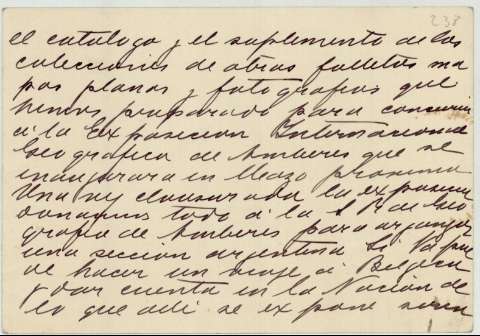 238
el catálogo y el suplemento de las
colecciones de obras folletos ma
pas planos y fotografias que
hemos preparado para concurrir
á la Exposicion Internacional
Geográfica de Amberes que se
inaugurara en Mayo proximo
Una vez clausurada la exposicion
donamos todo á la S R de Geo
grafia de Amberes para organizar
una seccion argentina Si Vd pue
de hacer un viaje á Belgica
y dar cuenta en la Nacion de
lo que alli se expone seria